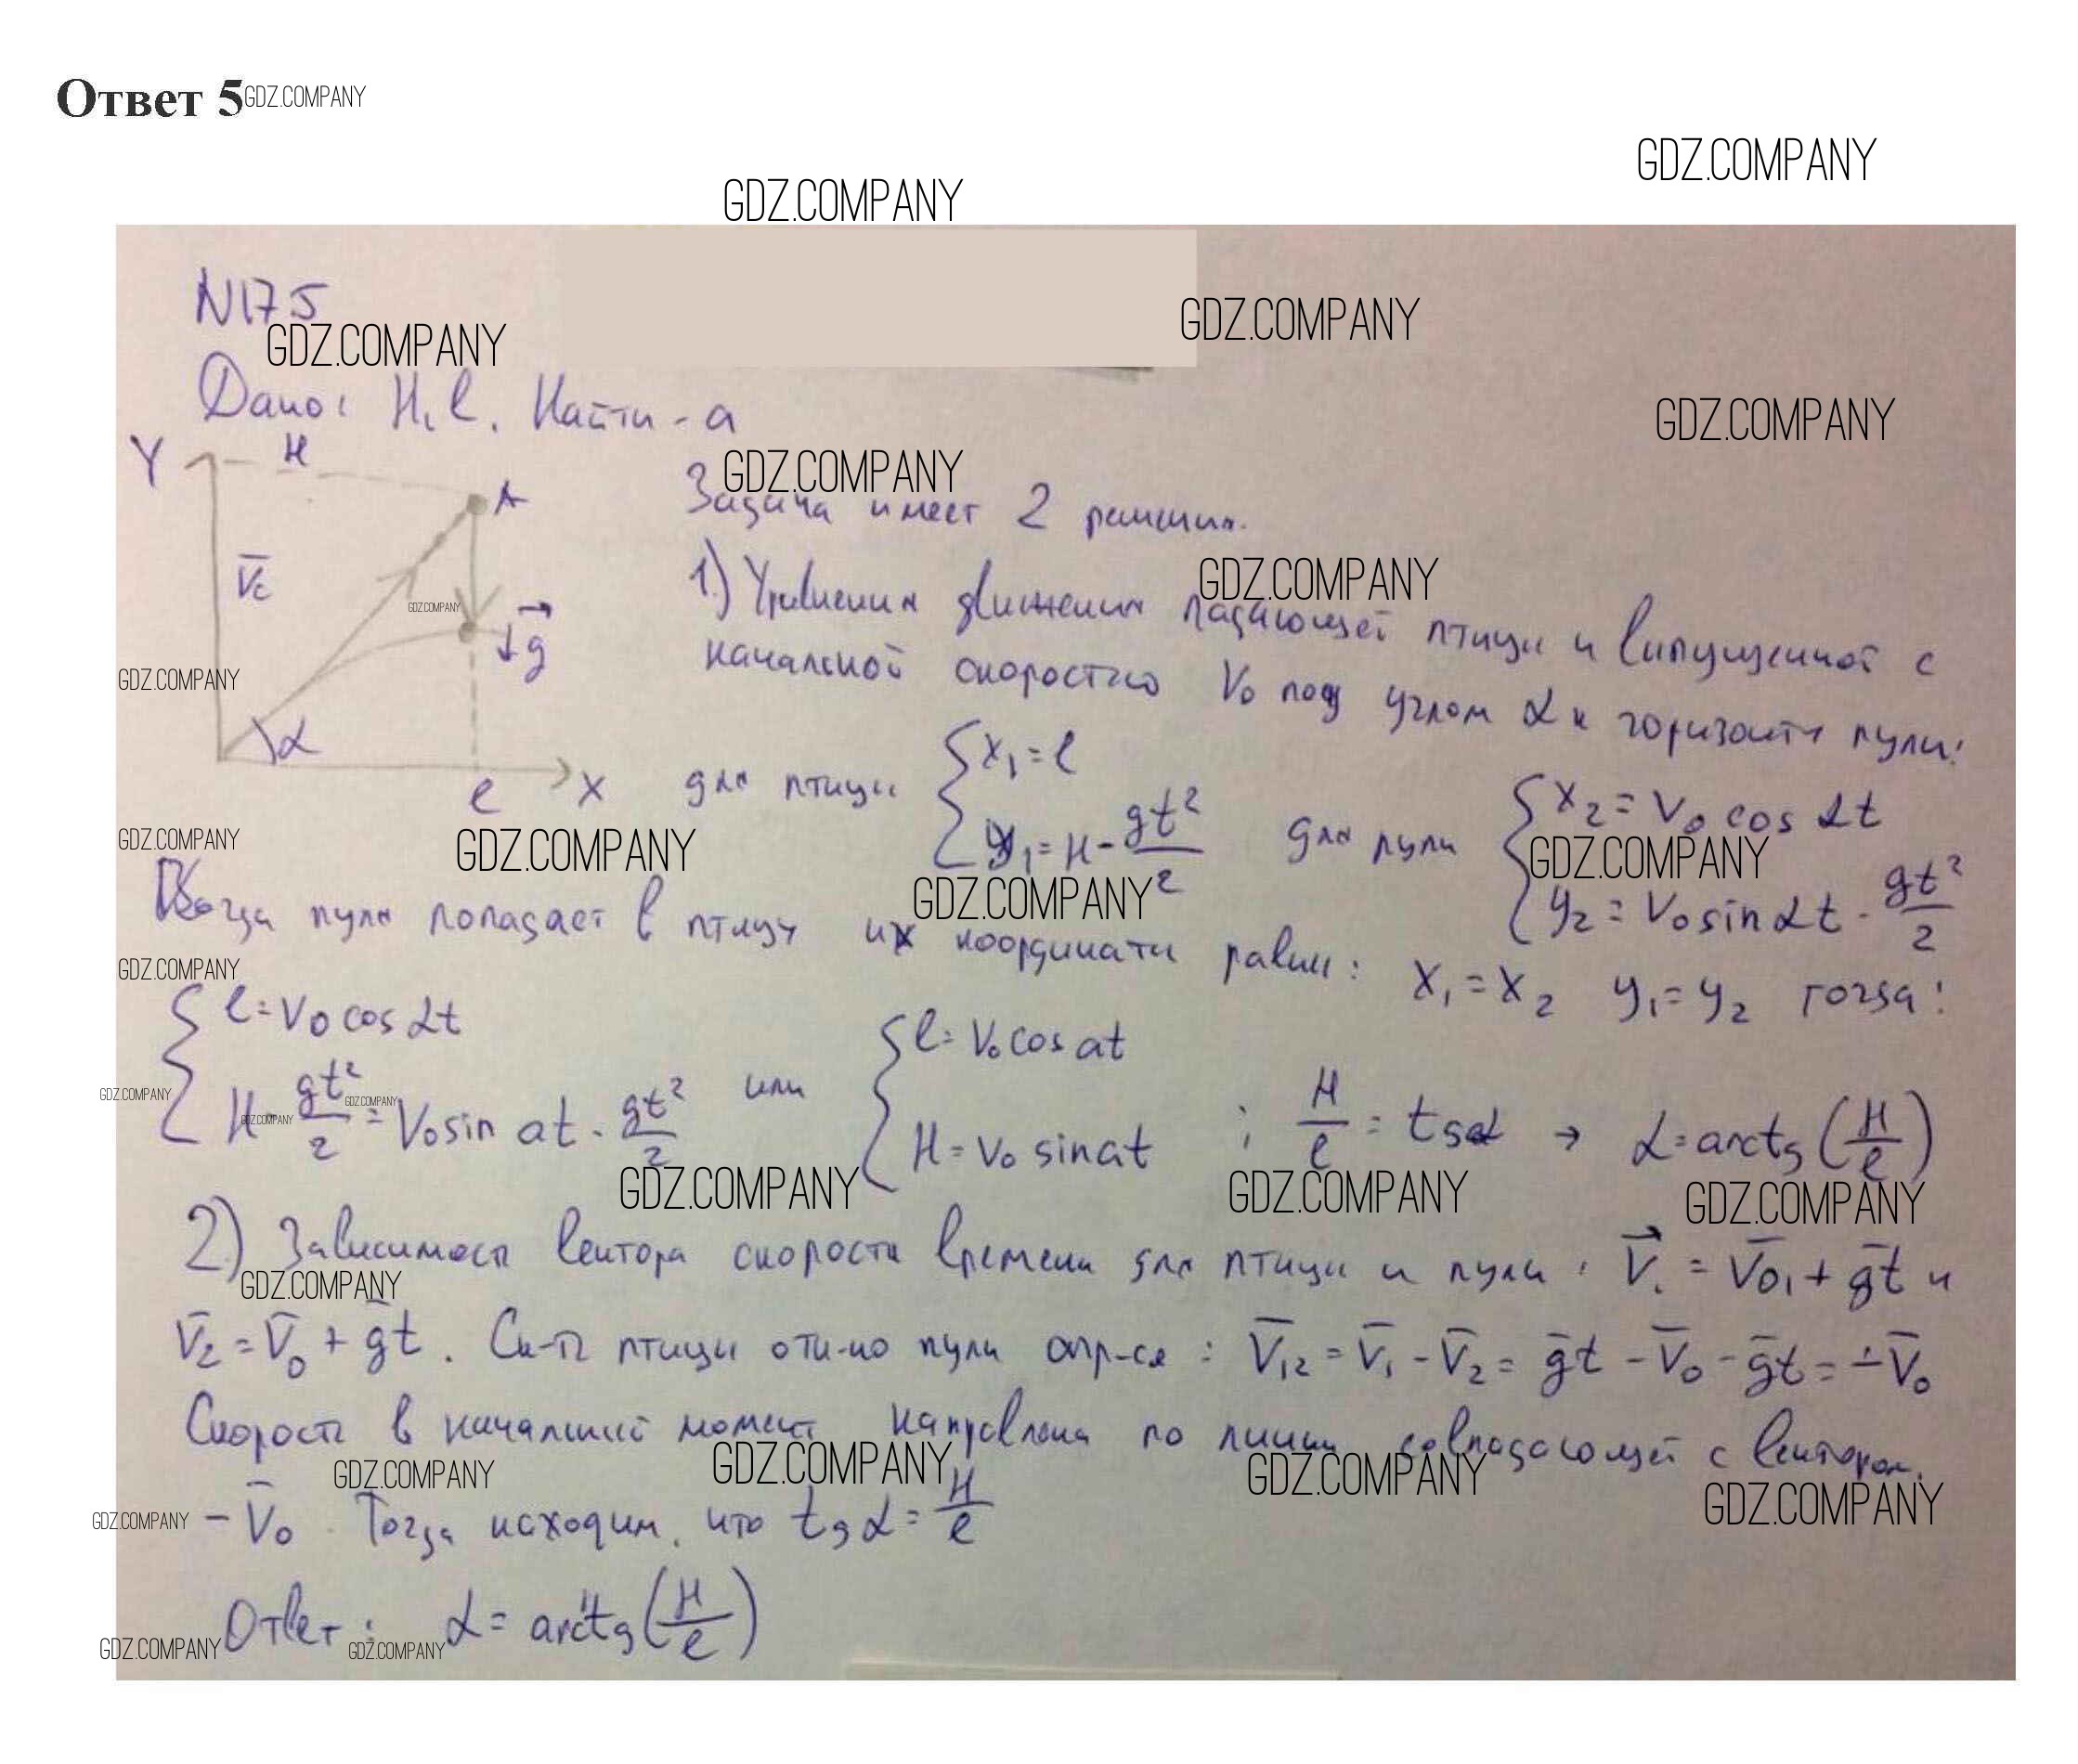 Ответ 5GDZ.COMPANY
GDZ.COMPANY
GDZ.COMPANY
N175
GDZ.COMPANY
GDZ.COMPANY
Дано: H, l. Найти - a
GDZ.COMPANY
Y H A
GDZ.COMPANY
Задача имеет 2 решения.
V̄c
GDZ.COMPANY
1.) Уравнения движения падающей птицы и выпущенной с
GDZ.COMPANY
g⃗
начальной скоростью V₀ под углом α к горизонту пули:
GDZ.COMPANY
α
l X для птицы { x₁ = l
y₁ = H - gt²/2 для пули { x₂ = V₀ cos αt
y₂ = V₀ sin αt - gt²/2
GDZ.COMPANY
GDZ.COMPANY
GDZ.COMPANY
GDZ.COMPANY
Когда пуля попадает в птицу их координаты равны: x₁ = x₂ y₁ = y₂ тогда:
GDZ.COMPANY
{ l = V₀ cos αt
H - gt²/2 = V₀ sin at - gt²/2 или { l = V₀ cos at
H = V₀ sin at ; H/l = tgα → α = arctg (H/l)
GDZ.COMPANY
GDZ.COMPANY
GDZ.COMPANY
GDZ.COMPANY
GDZ.COMPANY
GDZ.COMPANY
2) Зависимость вектора скорости времени для птицы и пули: V⃗. = V̄₀₁ + ḡt и
GDZ.COMPANY
V̄₂ = V̄₀ + ḡt. Ск-ть птицы отн-но пули опр-ся: V̄₁₂ = V̄₁ - V̄₂ = ḡt - V̄₀ - ḡt = -V̄₀
Скорость в начальный момент направлена по линии совпадающей с вектором
GDZ.COMPANY
GDZ.COMPANY
GDZ.COMPANY
GDZ.COMPANY
GDZ.COMPANY
- V̄₀. Тогда находим, что tg α = H/l
Ответ: α = arctg (H/l)
GDZ.COMPANY
GDZ.COMPANY